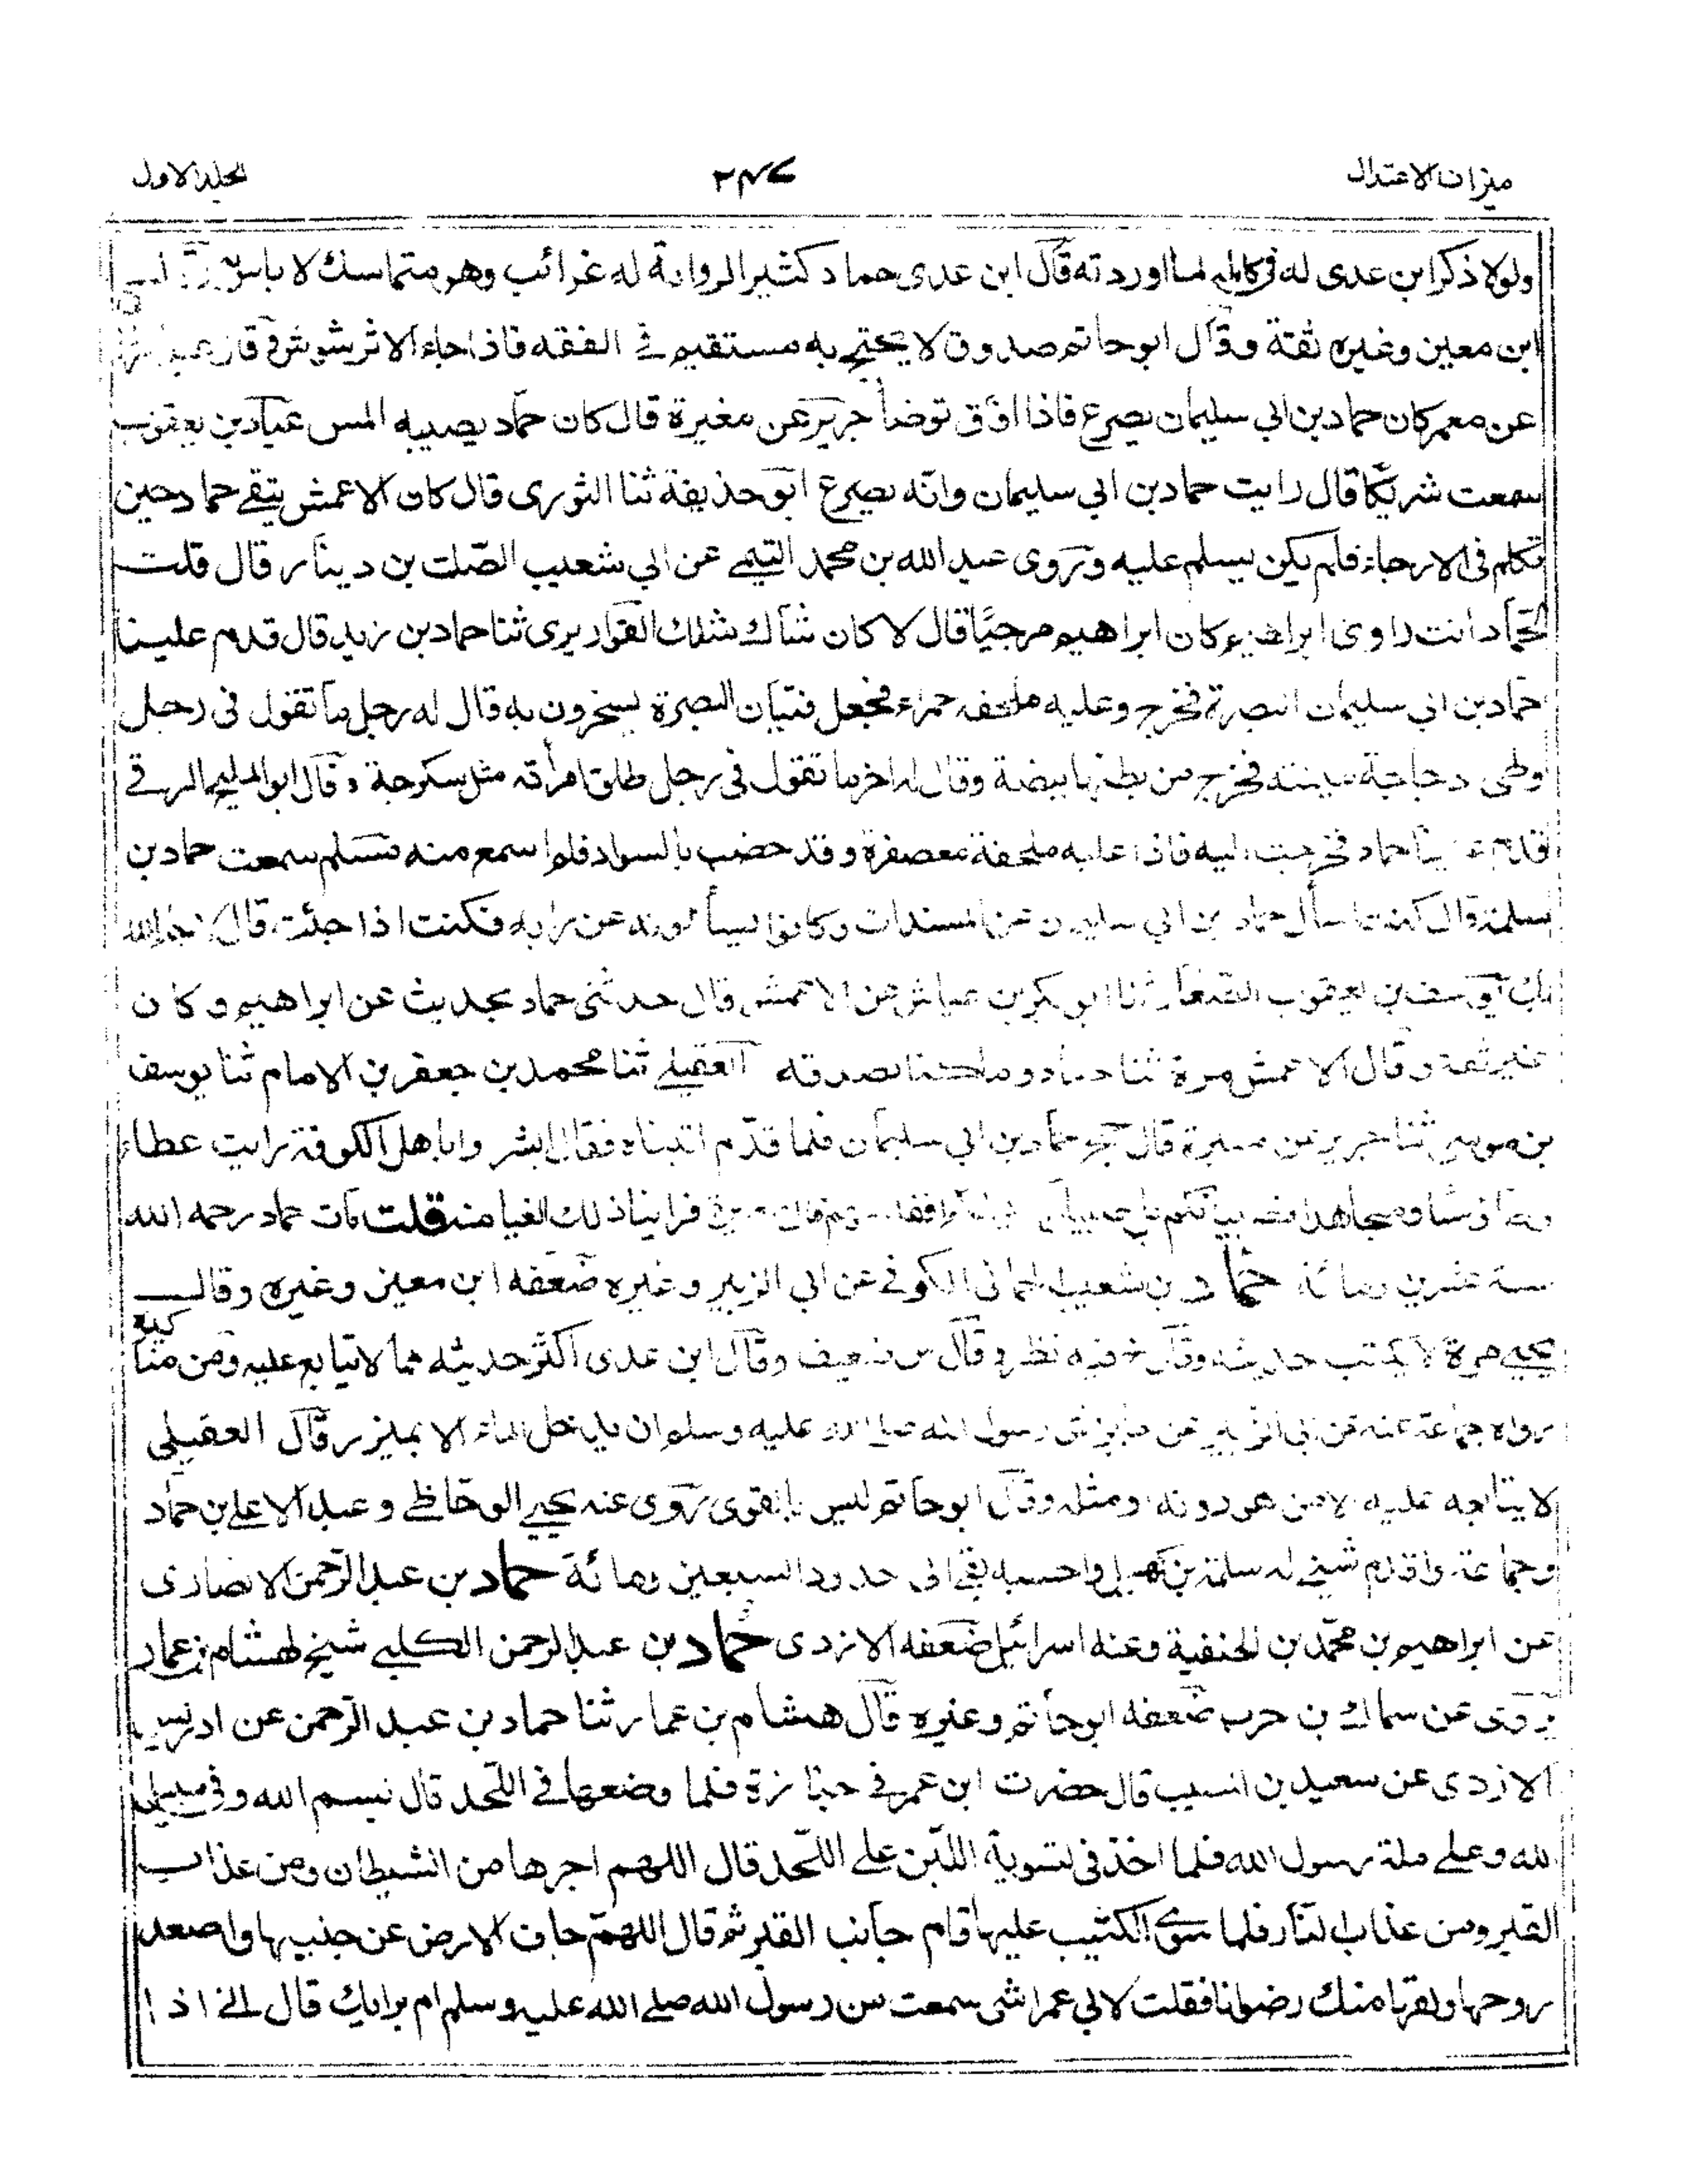 ميزان الاعتدال
٢٤٧
الجلد الاول
ولولا ذكر ابن عدى له فى كامله لما اوردته قال ابن عدى حماد كثير الرواية له غرائب وهو متماسك لا باس
ابن معين وغيره ثقة وقال ابو حاتم صدوق لا يحتج به مستقيم فے الفقه فاذا جاء الاثر شوش
عن معمر كان حماد بن ابي سليمان يصرع فاذا افاق توضأ جرير عن مغيرة قال كان حماد يصيبه المس عباد بن يعقوب
سمعت شريكا قال رايت حماد بن ابي سليمان وانه يصرع ابو حذيفة ثنا الثورى قال كان الاعمش يتقے حماد حين
تكلم فى الارجاء فلم يكن يسلم عليه وروى عبد الله بن محمد التيمے عن ابي شعيب الصلت بن دينار قال قلت
لحماد انت راوى ابراهيم كان ابراهيم مرجيا قال لا كان شاك مثلك القواريرى ثنا حماد بن زيد قال قدم علينا
حماد بن ابي سليمان البصرة فخرج وعليه ملحفه حمراء فجعل فتيان البصرة يسخرون به قال له رجل ما تقول فى رجل
وطى دجاجة ميتته فخرج من بطنها بيضة وقال له اخر ما تقول فى رجل طلق امرأته مثل سكرجة وقال ابو المليح الرقے
قدم علينا حماد فخرجت اليه فاذا عليه ملحفة معصفرة وقد خضب بالسواد فلم اسمع منه سمعت حماد بن
سلمة قال كنت اسأل حماد بن ابي سليمان عن المسندات وكانوا يسألونه عن رايه فكنت اذا جئت قال لا جاء الله
بك يوسف بن يعقوب الصفار ثنا ابو بكر بن عياش عن الاعمش قال حدثنى حماد بحديث عن ابراهيم وكان
غير ثقة وقال الاعمش مرة ثنا حماد وما كنا نصدقه العقيلے ثنا محمد بن جعفر بن الامام ثنا يوسف
بن موسى ثنا جرير عن مغيرة قال حج حماد بن ابي سليمان فلما قدم اتيناه فقال ابشروا يا اهل الكوفة رايت عطاء
وطاؤسا ومجاهدا فصبيانكم بل صبيان صبيانكم افقه منهم قال مغيرة فراينا ذلك بغيا منه قلت مات حماد رحمه الله
سنة عشرين ومائة حماد بن شعيب الحمانى الكوفے عن ابي الزبير وغيره ضعفه ابن معين وغيره وقال
يحيے مرة لا يكتب حديثه وقال خ فيه نظر وقال س ضعيف وقال ابن عدى اكثر حديثه مما لا يتابع عليه ومن مناكيره
رواه جماعة عنه عن ابي الزبير عن جابر نهى رسول الله صلے الله عليه وسلم ان يدخل الماء الا بميزر وقال العقيلى
لا يتابعه عليه الا من هو دونه ومثله وقال ابو حاتم ليس بالقوى روى عنه يحيے الوحاظے وعبد الاعلے بن حماد
وجماعة واقدم شيخ له سلمة بن كهيل واحسبه بقے الى حدود السبعين ومائة حماد بن عبد الرحمن الانصارى
عن ابراهيم بن محمد بن الحنفية وعنه اسرائيل ضعفه الازدى حماد بن عبد الرحمن الكلبے شيخ لهشام بن عمار
يروى عن سماك بن حرب ضعفه ابو حاتم وغيره قال هشام بن عمار ثنا حماد بن عبد الرحمن عن ادريس
الازدى عن سعيد بن المسيب قال حضرت ابن عمر فے جنازة فلما وضعها فے اللحد قال بسم الله وفى سبيل
الله وعلے ملة رسول الله فلما اخذ فى تسوية اللبن علے اللحد قال اللهم اجرها من الشيطان ومن عذاب
القبر ومن عذاب النار فلما سوى الكثيب عليها قام جانب القبر ثم قال اللهم جاف الارض عن جنبيها واصعد
روحها ولقها منك رضوانا فقلت لابي عمر اشى سمعت من رسول الله صلے الله عليه وسلم ام برايك قال انى اذا